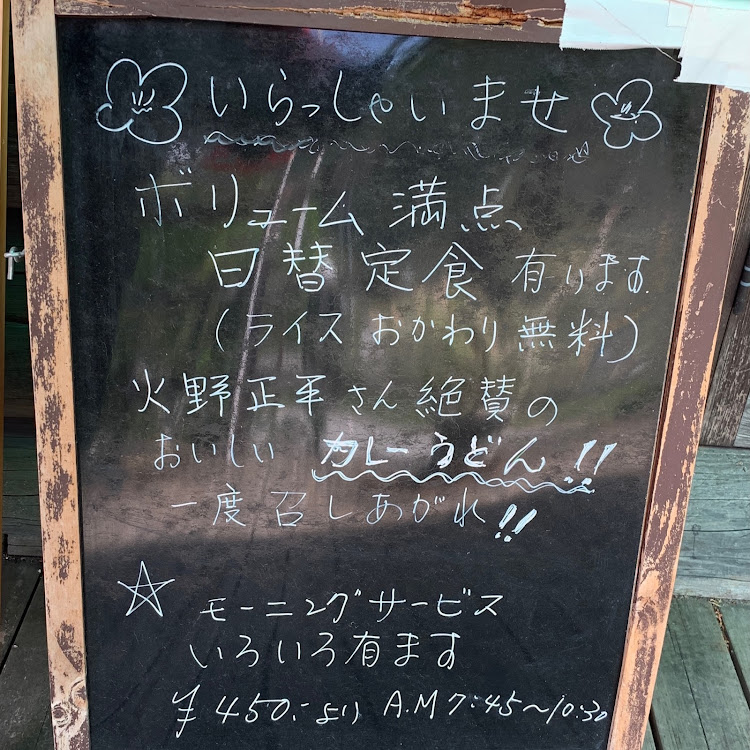 いらっしゃいませ
ボリューム満点
日替定食有ります
(ライスおかわり無料)
火野正平さん絶賛の
おいしいカレーうどん!!
一度召しあがれ!!
☆ モーニングサービス
いろいろ有ます
¥450:-より A.M 7:45~10:30